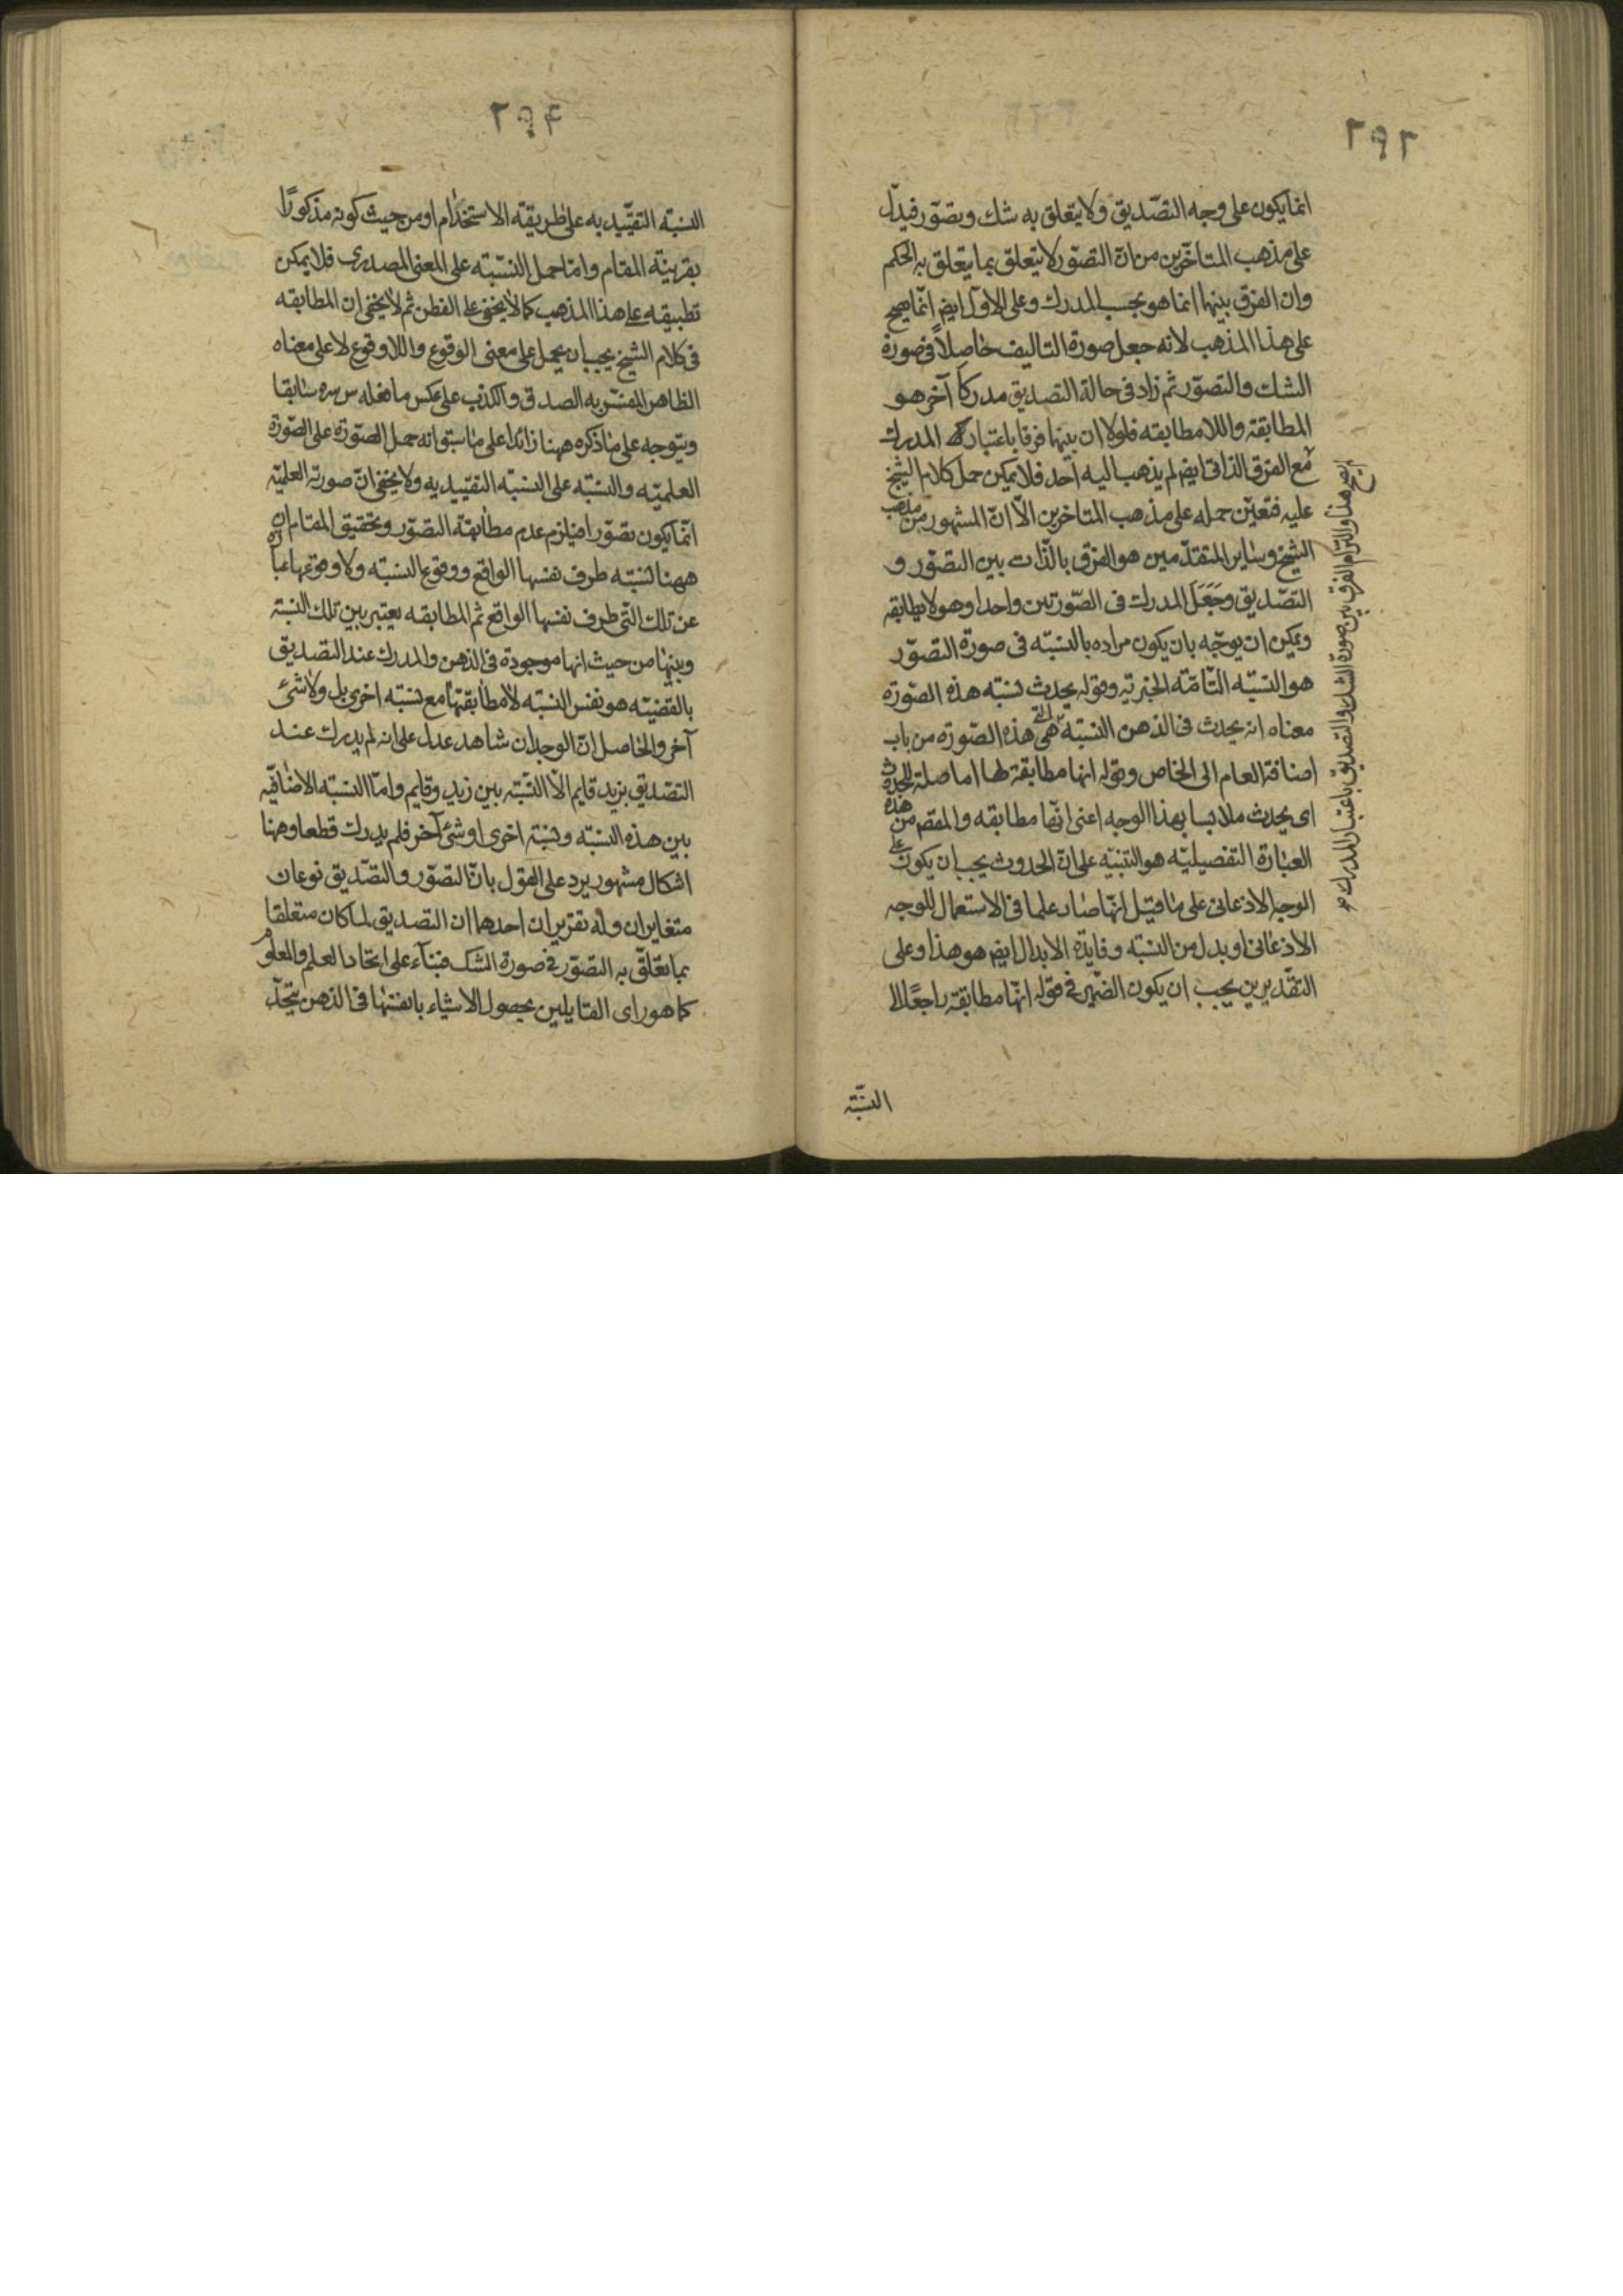 ٢٩٢
انما يكون على وجه التصّديق ولا يتعلق به شك وبصّور فيدلّ
على مذهب المتاخّرين من انّ التصّور لا يتعلق بما يتعلق به الحكم
وان الفرق بينهما انما هو بحسب المدرك وعلى الاوّل ايض انّما يصح
على هذا المذهب لانه جعل صورة التاليف حاصلاً في صورة
الشك والتصّور ثم زاد في حالة التصديق مدركاً آخر هو
المطابقة واللامطابقه فلولا ان بينهما فرقا باعتبار المدرك
مع الفرق الذاتى ايض لم يذهب اليه احد فلا يمكن حمل كلام الشيخ
عليه فتعيّن حمله على مذهب المتاخرين الاّ انّ المشهور من مذهب
الشيخ وساير المتقدّمين هو الفرق بالذّات بين التصّور و
التصّديق وجَعَلَ المدرك فى الصّورتين واحدا وهو لا يطابقه
ويمكن ان يوجّه بان يكون مراده بالنسبّه فى صورة التصوّر
هو النسبّه التّامّة الخبريّه وقوله يحدث نسبّه هذه الصّورة
معناه انه يحدث فى الذهن النسبّة التى هى هذه الصّورة من باب
اضافة العام الى الخاص وقوله انها مطابقة لها اما صلة ليحدث
اى يحدث ملابسا بهذا الوجه اعنى انّها مطابقه والمقصم من هذه
العبارة التفصيليّه هو التنبّيه على انّ الحدوث يجب ان يكون على
الوجه الاذعانى على ما قيل انّها صار علما فى الاستعمال للوجه
الاذعانى او بدل من النسبّه وفايدة الابدال ايض هو هذا وعلى
التقدّيرين يجب ان يكون الضّمير فى قوله انّها مطابقة راجعًا الى
ايض هنا والتزام الفرق بين صورة الشك والتصديق باعتبار المدرك
النسبّة
٢٩۴
النسبّه التقيّيديه على طريقة الاستخدام او من حيث كونه مذكورًا
بقرينّة المقام وامّا حمل النسّبّه على المعنى المصدرى فلا يمكن
تطبيقه على هذا المذهب كما لا يخفى على الفطن ثم لا يخفى ان المطابقه
فى كلام الشيخ يجب ان يحمل على معنى الوقوع واللا وقوع لا على معناه
الظاهر المفسّر به الصدق والكذب على عكس ما فعله س سره سابقا
ويتوجه على ما ذكره ههنا زائدا على ما سبق انه حمل الصّورة على الصّورة
العلميّه والنسبّه على النسبّه التقيّيديه ولا يخفى انّ صورته العلميّه
انّما يكون تصّورا فيلزم عدم مطابقة التصّور وتحقيق المقام ان
ههنا نسبّه طرف نفسها الواقع ووقوع النسبّه ولا وقوعها عبارة
عن تلك التّى طرف نفسها الواقع ثم المطابقه يعتبر بين تلك النسبة
وبينها من حيث انها موجودة فى الذهن والمدرك عند التصديق
بالقضيّه هو نفس النسبّه لا مطابقتها مع نسبّه اخرى بل ولا شئ
آخر والحاصل انّ الوجدان شاهد عدل على انه لم يدرك عند
التصّديق بزيد قايم الاّ النسّبّه بين زيد وقايم وامّا النسبّه الاضافيّه
بين هذه النسبّه ونسبة اخرى او شئ آخر فلم يدرك قطعا وهنا
اشكال مشهور يرد على القول بانّ التصّور والتصّديق نوعان
متغايران وله تقريران احدهما ان التصديق لما كان متعلقا
بما يتعلّق به التصّور فى صورة الشك فبناء على اتحاد العلم والمعلوم
كما هو راى القايلين بحصول الاشياء بانفسها فى الذهن يتحّد